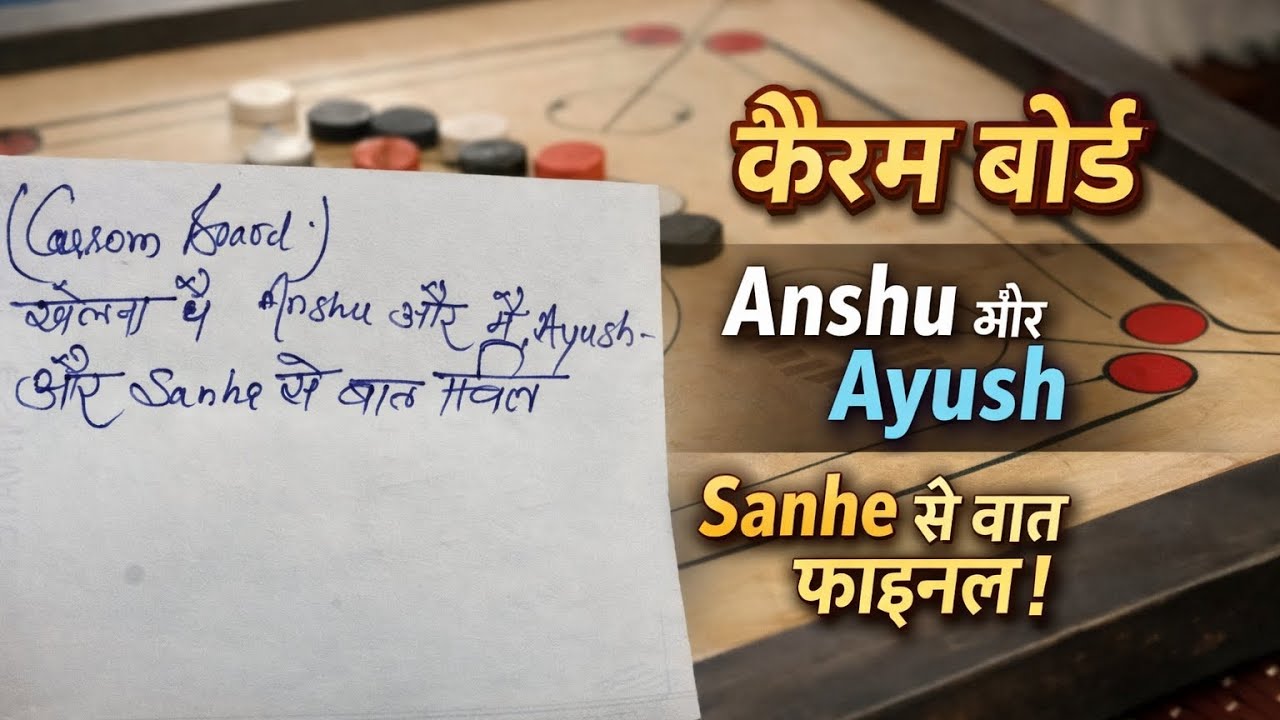 (Carrom Board.)
खेलना है Anshu और मै, Ayush-
और Sanhe से बात
कैरम बोर्ड
Anshu और
Ayush
Sanhe से वात
फाइनल!